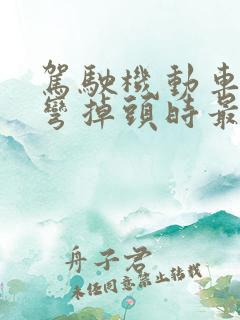 駕駛機動車
彎掉頭時最
舟子君
未經同意禁止轉載